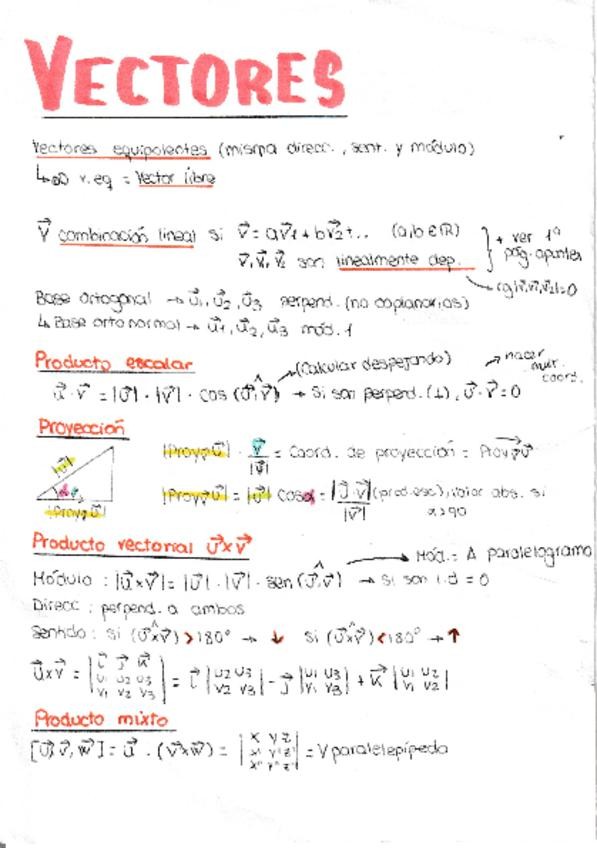 VECTORES
Vectores equipolentes (misma direcc., sent. y módulo)
↳ ∞ v.eq = Vector libre
V⃗ combinación lineal si V⃗ = aV⃗1 + bV⃗2 + .. (a,b ∈ ℝ)
V⃗, V⃗1, V⃗2 son linealmente dep.
+ ver 1ª
pág. apuntes
Base ortogonal → U⃗1, U⃗2, U⃗3 perpend. (no coplanarios)
↳ Base ortonormal → U⃗1, U⃗2, U⃗3 mód. 1
Producto escalar
(Calcular despejando)
hacer
mult.
coord.
U⃗ · V⃗ = |U⃗| · |V⃗| · cos (U⃗,V⃗) → Si son perpend. (⊥), U⃗ · V⃗ = 0
Proyección
|U⃗|
α
|Proyv⃗ U⃗|
|Proyv⃗ U⃗| · V⃗/|V⃗| = Coord. de proyección = Proyv⃗ U⃗
|Proyv⃗ U⃗| = |U⃗| cos α = |U⃗·V⃗|/|V⃗| (prod. esc), valor abs. si
α > 90
Producto vectorial U⃗ x V⃗
Mód. = A paralelogramo
Módulo : |U⃗xV⃗| = |U⃗| · |V⃗| · sen (U⃗,V⃗) → Si son l.d = 0
Direcc : perpend. a ambos
Sentido : Si (U⃗xV⃗) > 180° → ↓ Si (U⃗xV⃗) < 180° → ↑
U⃗xV⃗ = | i⃗ j⃗ k⃗ ; U1 U2 U3 ; V1 V2 V3 | = i⃗ | U2 U3 ; V2 V3 | - j⃗ | U1 U3 ; V1 V3 | + k⃗ | U1 U2 ; V1 V2 |
Producto mixto
[U⃗, V⃗, W⃗] = U⃗ · (V⃗xW⃗) = | x y z ; x' y' z' ; x'' y'' z'' | = V paralelepípedo